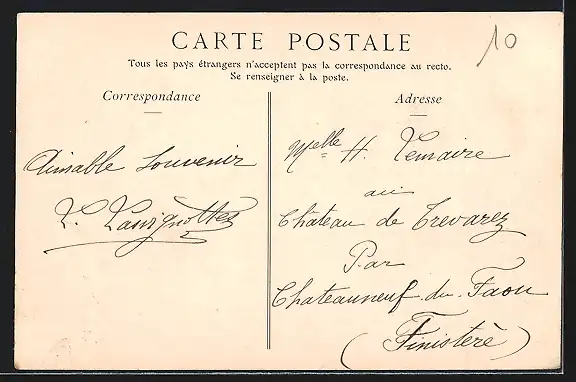 CARTE POSTALE
10
Tous les pays étrangers n'acceptent pas la correspondance au recto.
Se renseigner à la poste.
Correspondance
Aimable Souvenir
Adresse
Melle H. Lemaire
au
Château de Trevarez
Par
Chateauneuf-du-Faou
(Finistère)